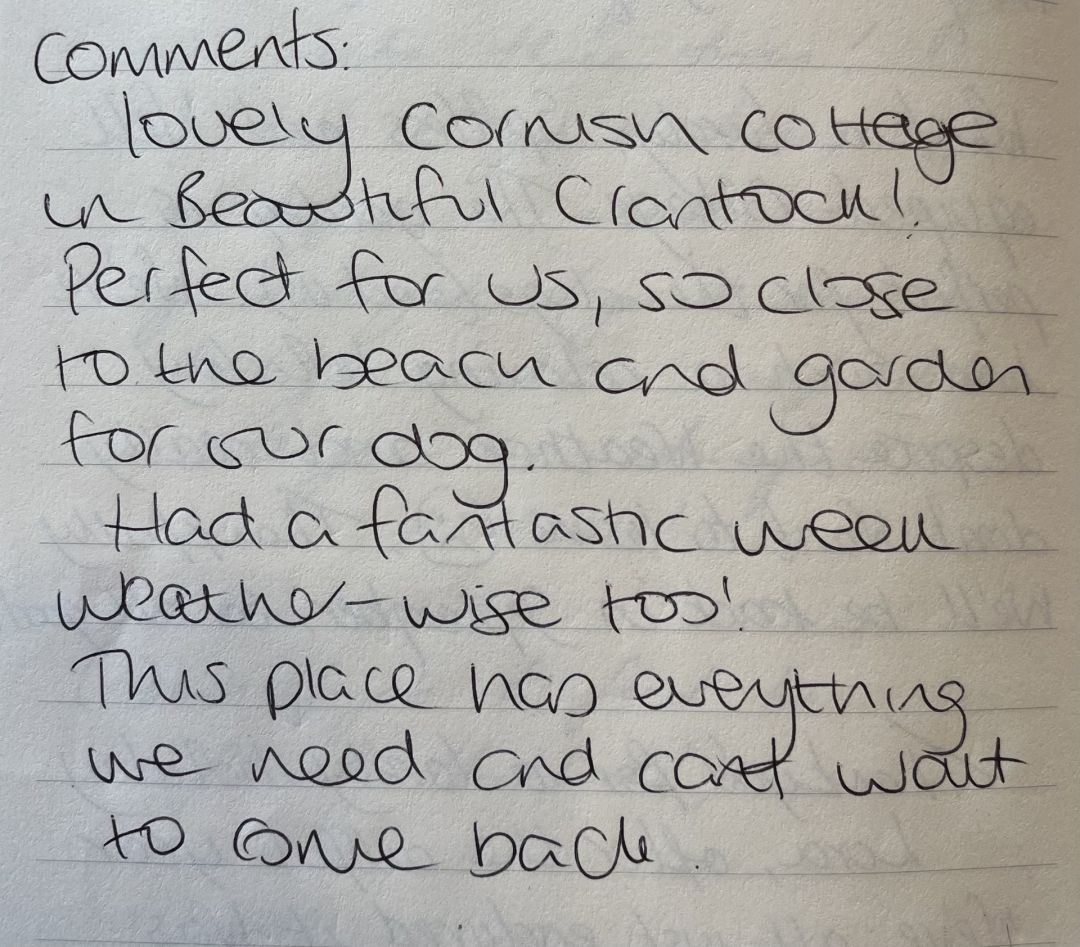 Comments:
lovely Cornish cottage
in Beautiful Crantock!
Perfect for us, so close
to the beach and garden
for our dog.
Had a fantastic week
weather-wise too!
This place has eveything
we need and can't wait
to come back.